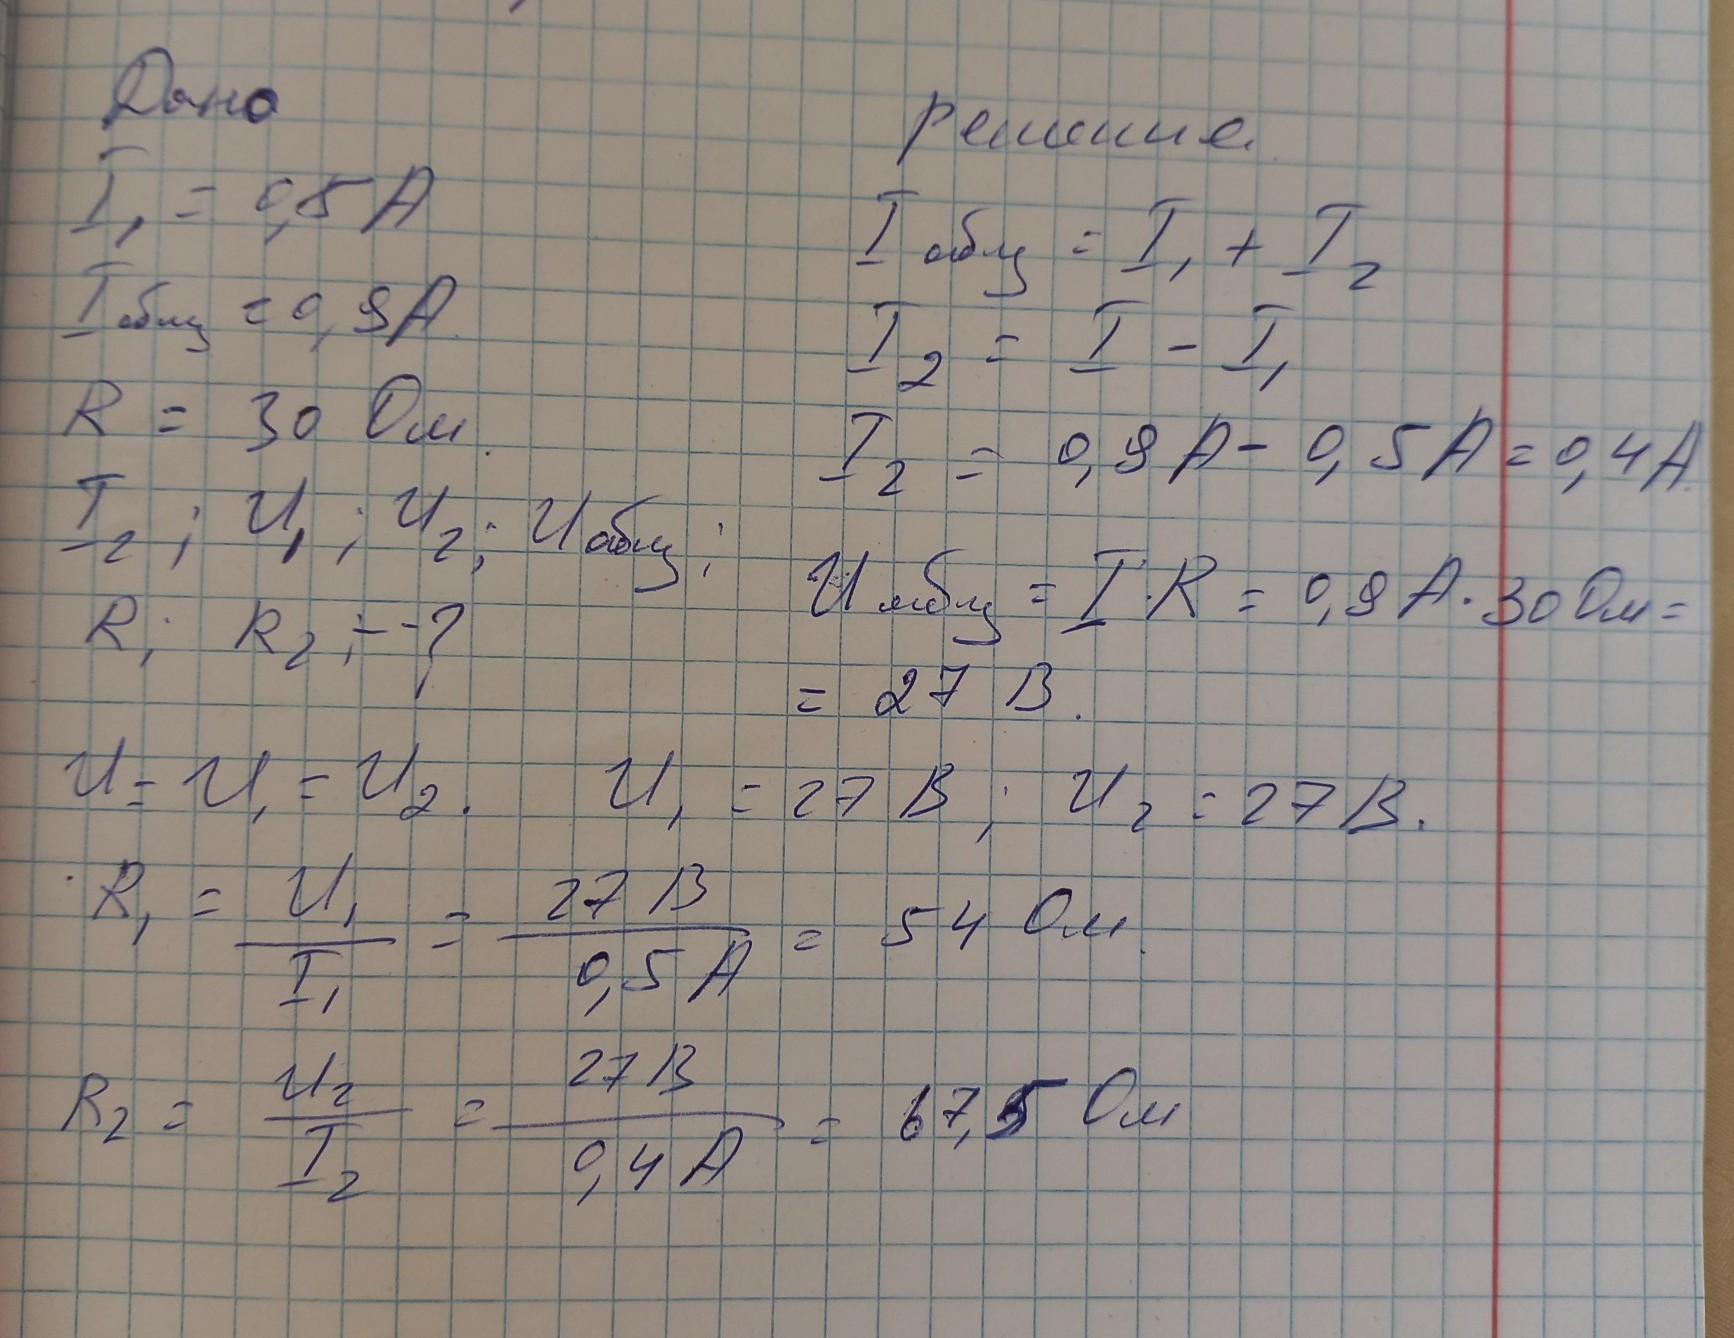 Дано
I₁ = 0,5 А
Iобщ = 0,9А
R = 30 Ом.
I₂; U₁; U₂; Uобщ;
R₁; R₂; - ?
решение.
Iобщ = I₁ + I₂
I₂ = I - I₁
I₂ = 0,9 А - 0,5 А = 0,4 А.
Uобщ = I·R = 0,9 А · 30 Ом =
= 27 В.
U = U₁ = U₂. U₁ = 27 В; U₂ = 27 В.
R₁ = U₁/I₁ = 27 В/0,5 А = 54 Ом.
R₂ = U₂/I₂ = 27 В/0,4 А = 67,5 Ом